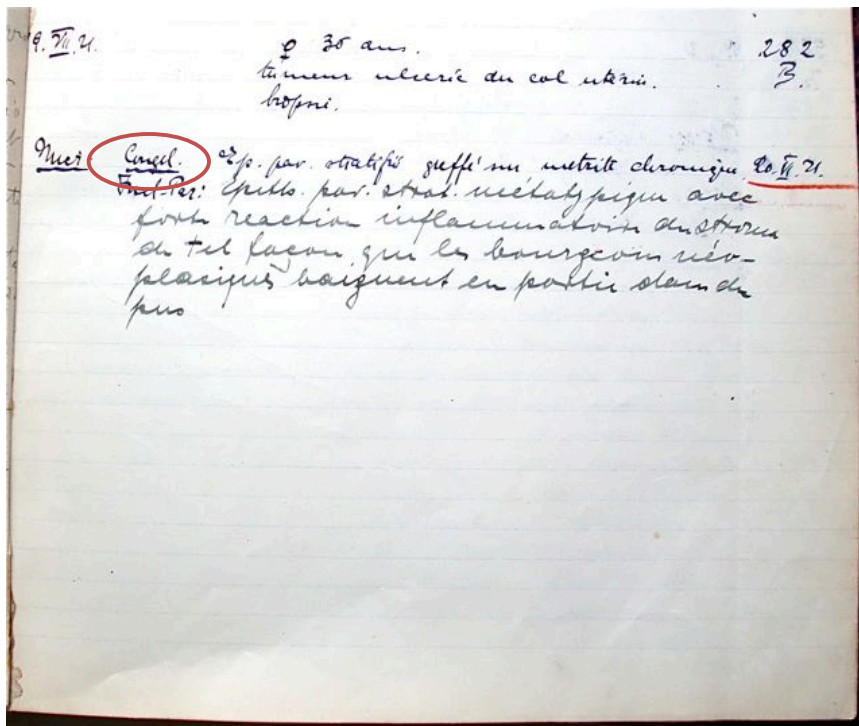 9. VII. 21. ♀ 36 ans. 282
tumeur ulcerie du col utérin. B.
biopsie.
Congel. Ep. pav. stratifié greffé sur metrite chronique 20. VII. 21.
Epith. pav. strat. métatypique avec
forte reaction inflammatoire du stroma
de tel façon, que les bourgeons néo-
plasiques baignent en partie dans du
pus